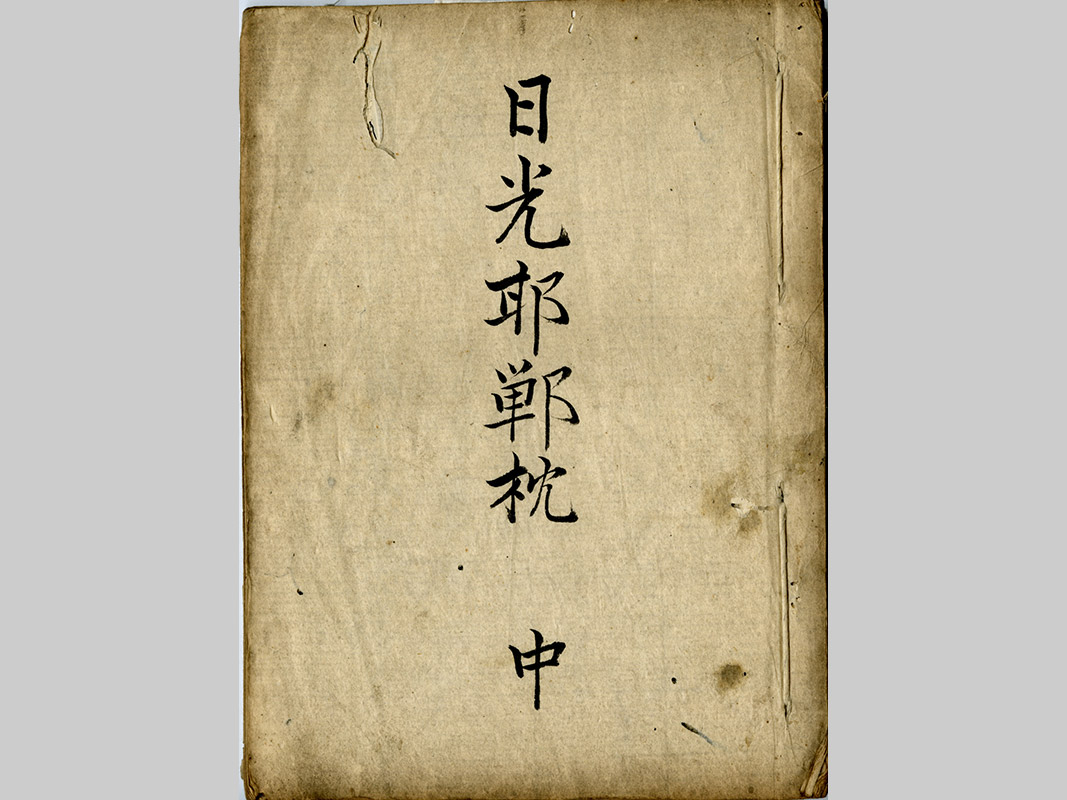 日光邯鄲枕　中